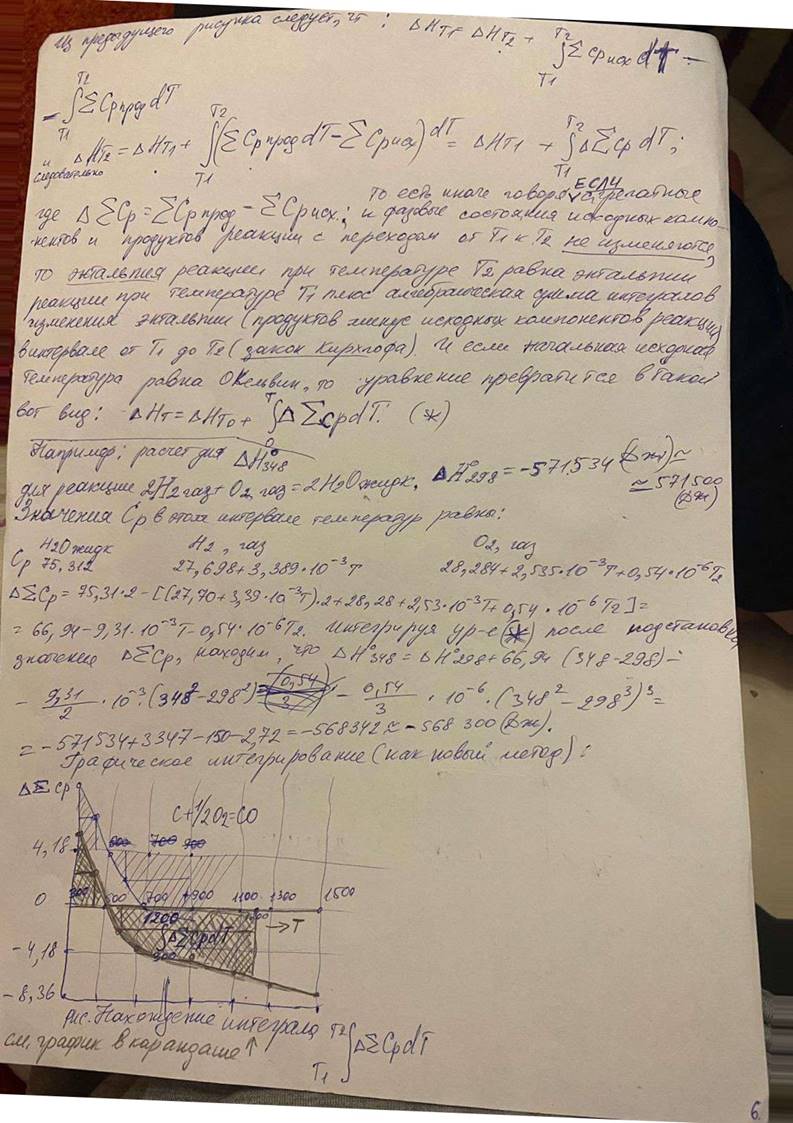 Из предыдущего рисунка следует, чт : ΔHT1= ΔHT2 + T2∫T1 ΣCp исх dT −
− T2∫T1 ΣCp прод dT
и следовательно ΔHT2 = ΔHT1 + T2∫T1 (ΣCp прод dT − ΣCp исх) dT = ΔHT1 + T2∫T1 ΔΣCp dT;
где ΔΣCp = ΣCp прод − ΣCp исх.; То есть иначе говоря, ЕСЛИ агрегатные
и фазовые состояния исходных компо-
нентов и продуктов реакции с переходом от T1 к T2 не изменяются,
то энтальпия реакции при температуре T2 равна энтальпии
реакции при температуре T1 плюс алгебраическая сумма интегралов
изменения энтальпии (продуктов минус исходных компонентов реакции)
в интервале от T1 до T2 (закон Кирхгофа). И если начальная исходная
температура равна 0 Кельвин, то уравнение превратится в такой
вот вид: ΔHT = ΔHT0 + T∫0 ΔΣCp dT. (*)
Например: расчет для ΔH°348
для реакции 2H2 газ + O2, газ = 2H2O жидк, ΔH°298 = -571534 (Дж) ≈
≈ 571500 (Дж)
Значения Cp в этом интервале температур равны:
H2O жидк H2, газ O2, газ
Cp 75,312 27,698+3,389·10⁻³T 28,284+2,535·10⁻³T+0,54·10⁻⁶T2
ΔΣCp = 75,31·2 − [(27,70+3,39·10⁻³T)·2+28,28+2,53·10⁻³T+0,54·10⁻⁶T2] =
= 66,94−9,31·10⁻³T−0,54·10⁻⁶T2. Интегрируя ур-е (*) после подстановки
значение ΔΣCp, находим, что ΔH°348 = ΔH°298 + 66,94 (348−298) −
− 9,31/2 · 10⁻³·(348²−298²) − 0,54/3 · 10⁻⁶·(348²−298³)³ =
= −571534+3347−150−2,72 = −568342 ≈ −568 300 (Дж).
Графическое интегрирование (как новый метод):
ΔΣCp
C+1/2O2=CO
4,18 600 700 900
0 300 500 700 900 1100 1300 1500
1200 → T
∫ΔΣCpdT
−4,18
−8,36
рис. Нахождение интеграла T2∫T1 ΔΣCpdT
см. график в карандаше ↑
6.